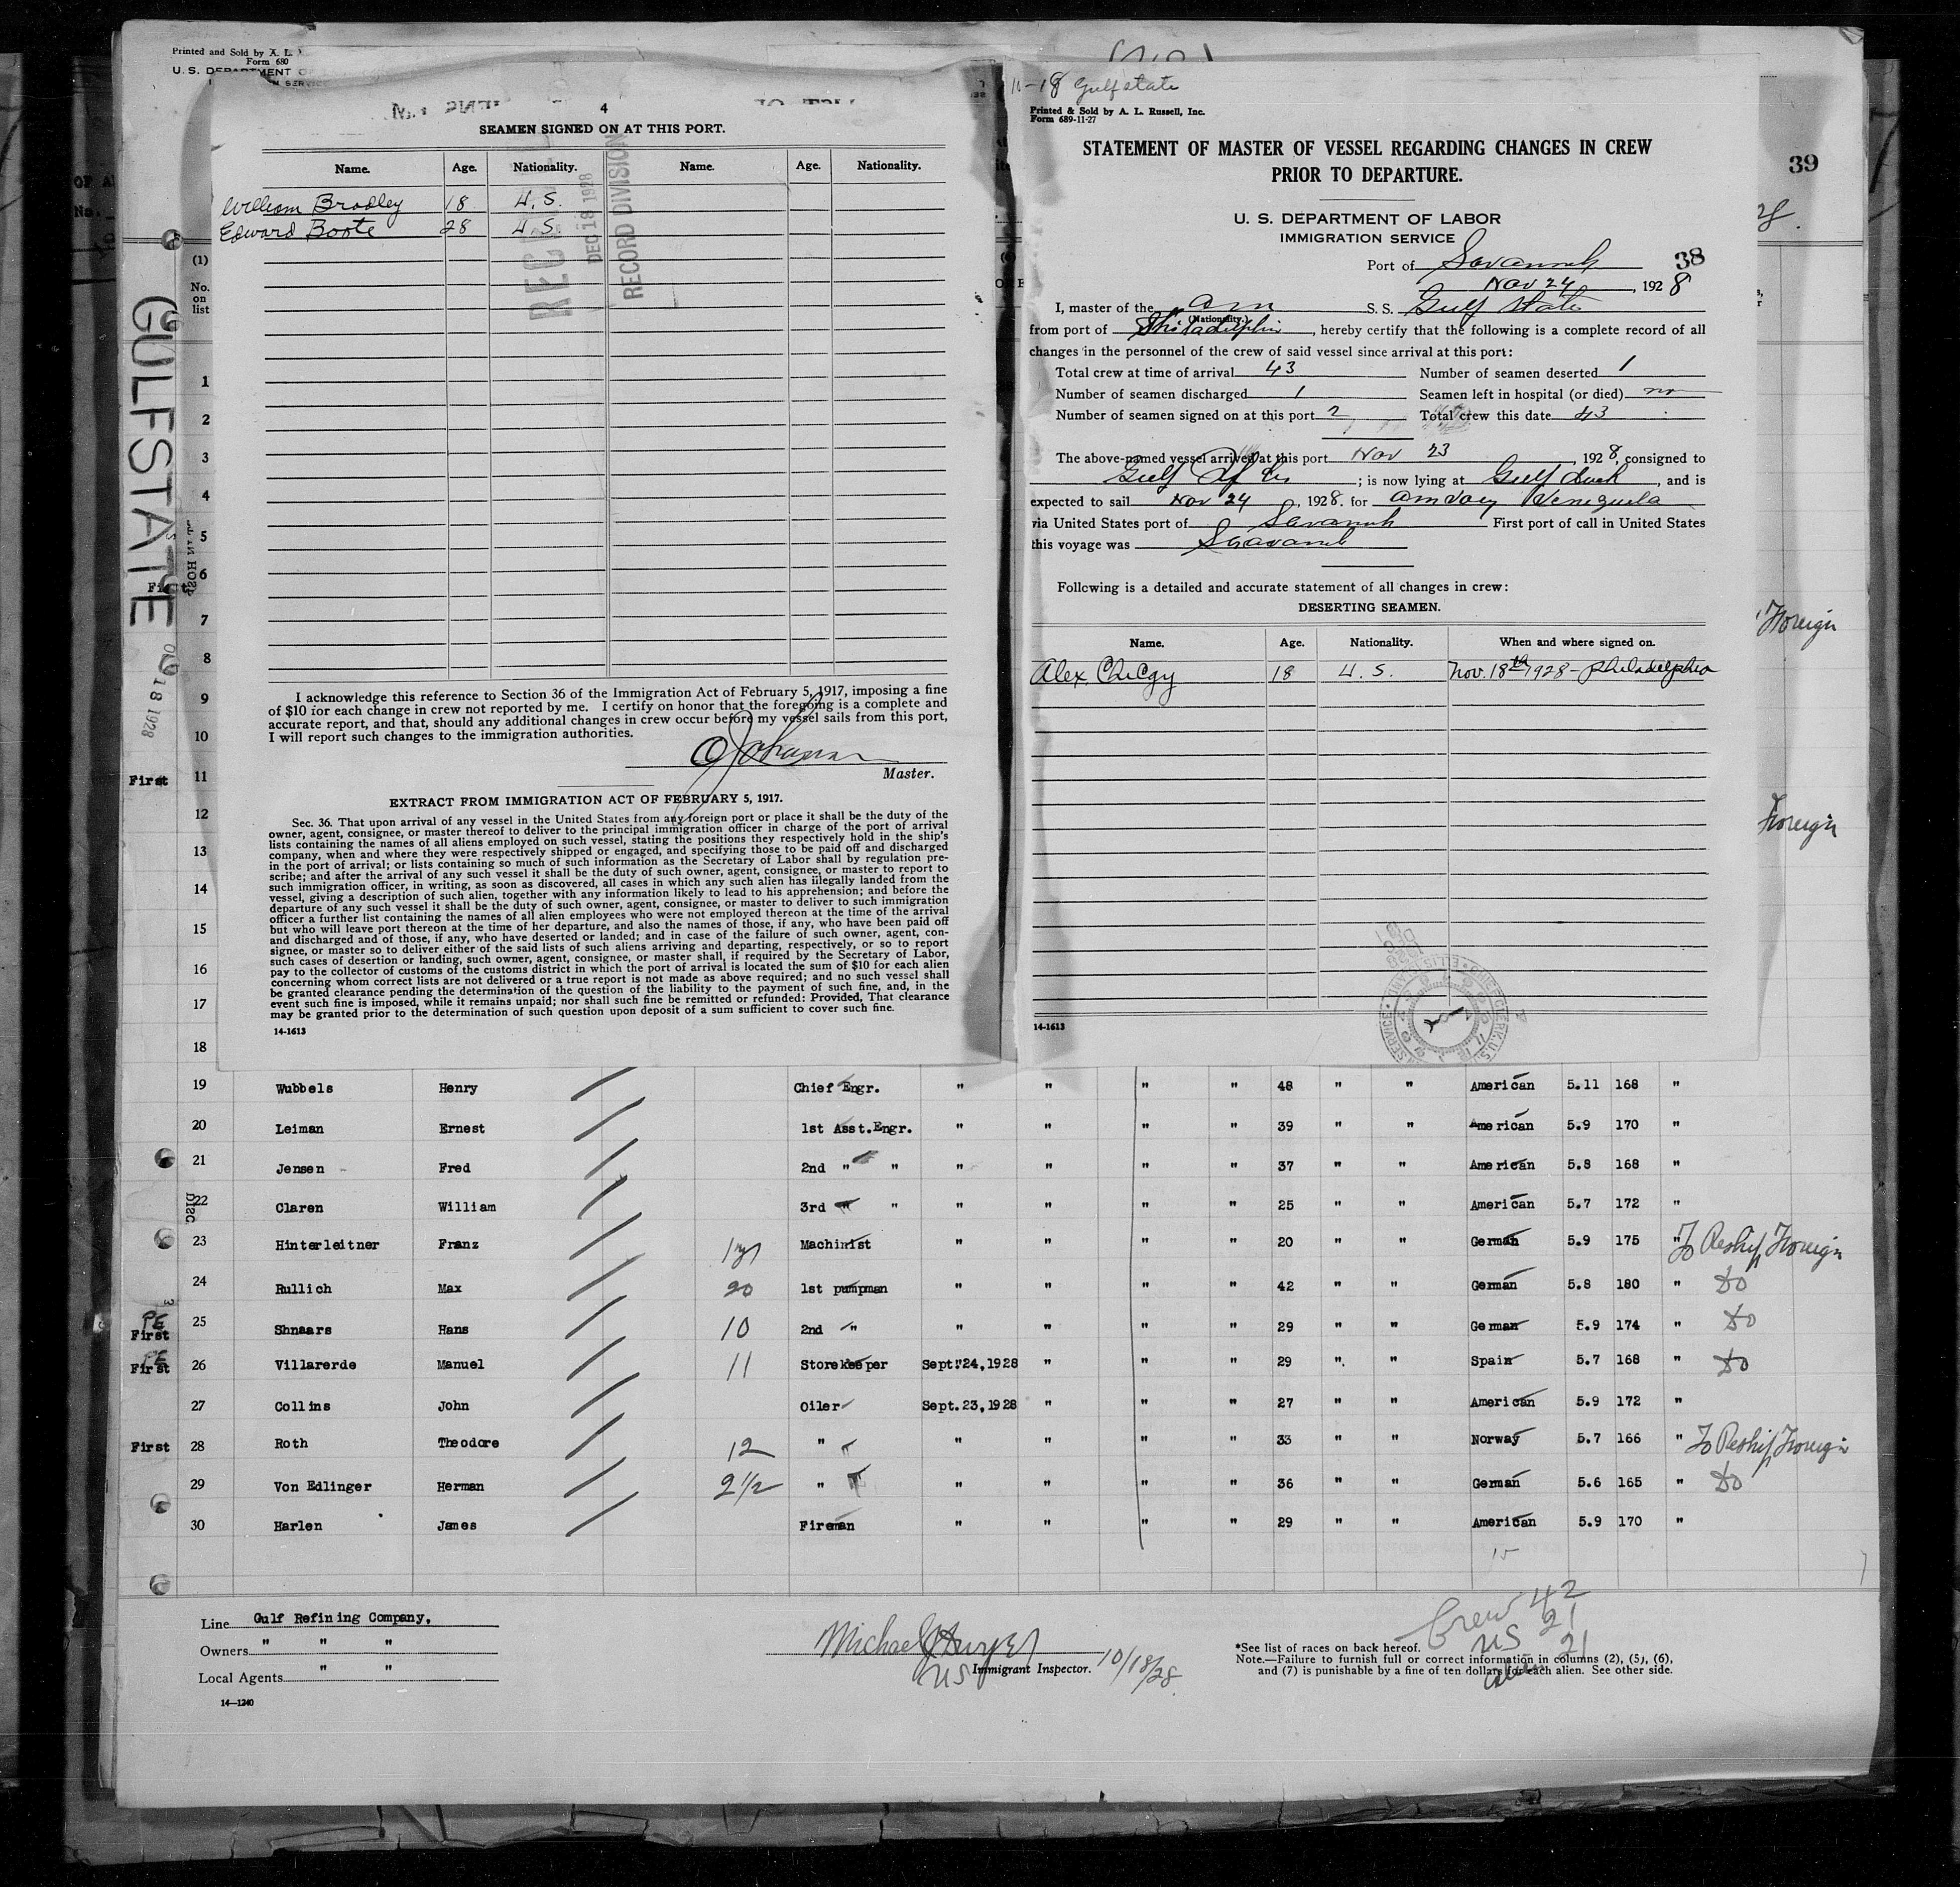 Printed and Sold by A. L.
Form 680
U. S. DEPARTMENT O
4
SEAMEN SIGNED ON AT THIS PORT.
Name. Age. Nationality. Name. Age. Nationality.
William Bradley 18 U. S.
Edward Boote 28 U. S.
RECORD DIVISION
DEC 18 1928
I acknowledge this reference to Section 36 of the Immigration Act of February 5, 1917, imposing a fine
of $10 for each change in crew not reported by me. I certify on honor that the foregoing is a complete and
accurate report, and that, should any additional changes in crew occur before my vessel sails from this port,
I will report such changes to the immigration authorities.
Master.
EXTRACT FROM IMMIGRATION ACT OF FEBRUARY 5, 1917.
Sec. 36. That upon arrival of any vessel in the United States from any foreign port or place it shall be the duty of the
owner, agent, consignee, or master thereof to deliver to the principal immigration officer in charge of the port of arrival
lists containing the names of all aliens employed on such vessel, stating the positions they respectively hold in the ship's
company, when and where they were respectively shipped or engaged, and specifying those to be paid off and discharged
in the port of arrival; or lists containing so much of such information as the Secretary of Labor shall by regulation pre-
scribe; and after the arrival of any such vessel it shall be the duty of such owner, agent, consignee, or master to report to
such immigration officer, in writing, as soon as discovered, all cases in which any such alien has illegally landed from the
vessel, giving a description of such alien, together with any information likely to lead to his apprehension; and before the
departure of any such vessel it shall be the duty of such owner, agent, consignee, or master to deliver to such immigration
officer a further list containing the names of all alien employees who were not employed thereon at the time of the arrival
but who will leave port thereon at the time of her departure, and also the names of those, if any, who have been paid off
and discharged and of those, if any, who have deserted or landed; and in case of the failure of such owner, agent, con-
signee, or master so to deliver either of the said lists of such aliens arriving and departing, respectively, or so to report
such cases of desertion or landing, such owner, agent, consignee, or master shall, if required by the Secretary of Labor,
pay to the collector of customs of the customs district in which the port of arrival is located the sum of $10 for each alien
concerning whom correct lists are not delivered or a true report is not made as above required; and no such vessel shall
be granted clearance pending the determination of the question of the liability to the payment of such fine, and, in the
event such fine is imposed, while it remains unpaid; nor shall such fine be remitted or refunded: Provided, That clearance
may be granted prior to the determination of such question upon deposit of a sum sufficient to cover such fine.
14-1613
-18 Gulfstate
Printed & Sold by A. L. Russell, Inc.
Form 689-11-27
STATEMENT OF MASTER OF VESSEL REGARDING CHANGES IN CREW
PRIOR TO DEPARTURE.
39
U. S. DEPARTMENT OF LABOR
IMMIGRATION SERVICE
Port of Savannah 38
Nov 24, 1928
I, master of the Am S. S. Gulf State
(Nationality.)
from port of Philadelphia, hereby certify that the following is a complete record of all
changes in the personnel of the crew of said vessel since arrival at this port:
Total crew at time of arrival 43 Number of seamen deserted 1
Number of seamen discharged 1 Seamen left in hospital (or died) no
Number of seamen signed on at this port 2 Total crew this date 43
The above-named vessel arrived at this port Nov 23, 1928, consigned to
Gulf Rf Co; is now lying at Gulf dock, and is
expected to sail Nov 24, 1928. for Amuay Venezuela
via United States port of Savannah First port of call in United States
this voyage was Savannah
Following is a detailed and accurate statement of all changes in crew:
DESERTING SEAMEN.
Name. Age. Nationality. When and where signed on.
Alex 18 U. S. Nov. 18th 1928 - Philadelphia
14-1613
GULFSTATE
18 1928
(1)
No.
on
list
1
2
3
4
5
6
7
8
9
10
First 11
12
13
14
15
16
17
18
Foreign
Foreign
19 Wubbels Henry Chief Engr. " " " " 48 " " American 5.11 168 "
20 Leiman Ernest 1st Asst.Engr. " " " " 39 " " American 5.9 170 "
21 Jensen Fred 2nd " " " " " " 37 " " American 5.8 168 "
DISC 22 Claren William 3rd " " " " " " 25 " " American 5.7 172 "
23 Hinterleitner Franz 1 yr Machinist " " " " 20 " " German 5.9 175 " To Reship Foreign
24 Rullich Max 20 1st pumpman " " " " 42 " " German 5.8 180 " Do
PE First 25 Shnaars Hans 10 2nd " " " " " 29 " " German 5.9 174 " Do
PE First 26 Villarerde Manuel 11 Storekeeper Sept."24,1928 " " " 29 " " Spain 5.7 168 " Do
27 Collins John Oiler Sept.23,1928 " " " 27 " " American 5.9 172 "
First 28 Roth Theodore 12 " " " " " 33 " " Norway 5.7 166 " To Reship Foreign
29 Von Edlinger Herman 2 1/2 " " " " " 36 " " German 5.6 165 " Do
30 Harlen James Fireman " " " " 29 " " American 5.9 170 "
Line Gulf Refining Company.
Owners " " "
Local Agents " "
14-1240
Michael
US Immigrant Inspector. 10/18/28
Crew 42
US 21
alien 21
*See list of races on back hereof.
Note.—Failure to furnish full or correct information in columns (2), (5), (6),
and (7) is punishable by a fine of ten dollars for each alien. See other side.